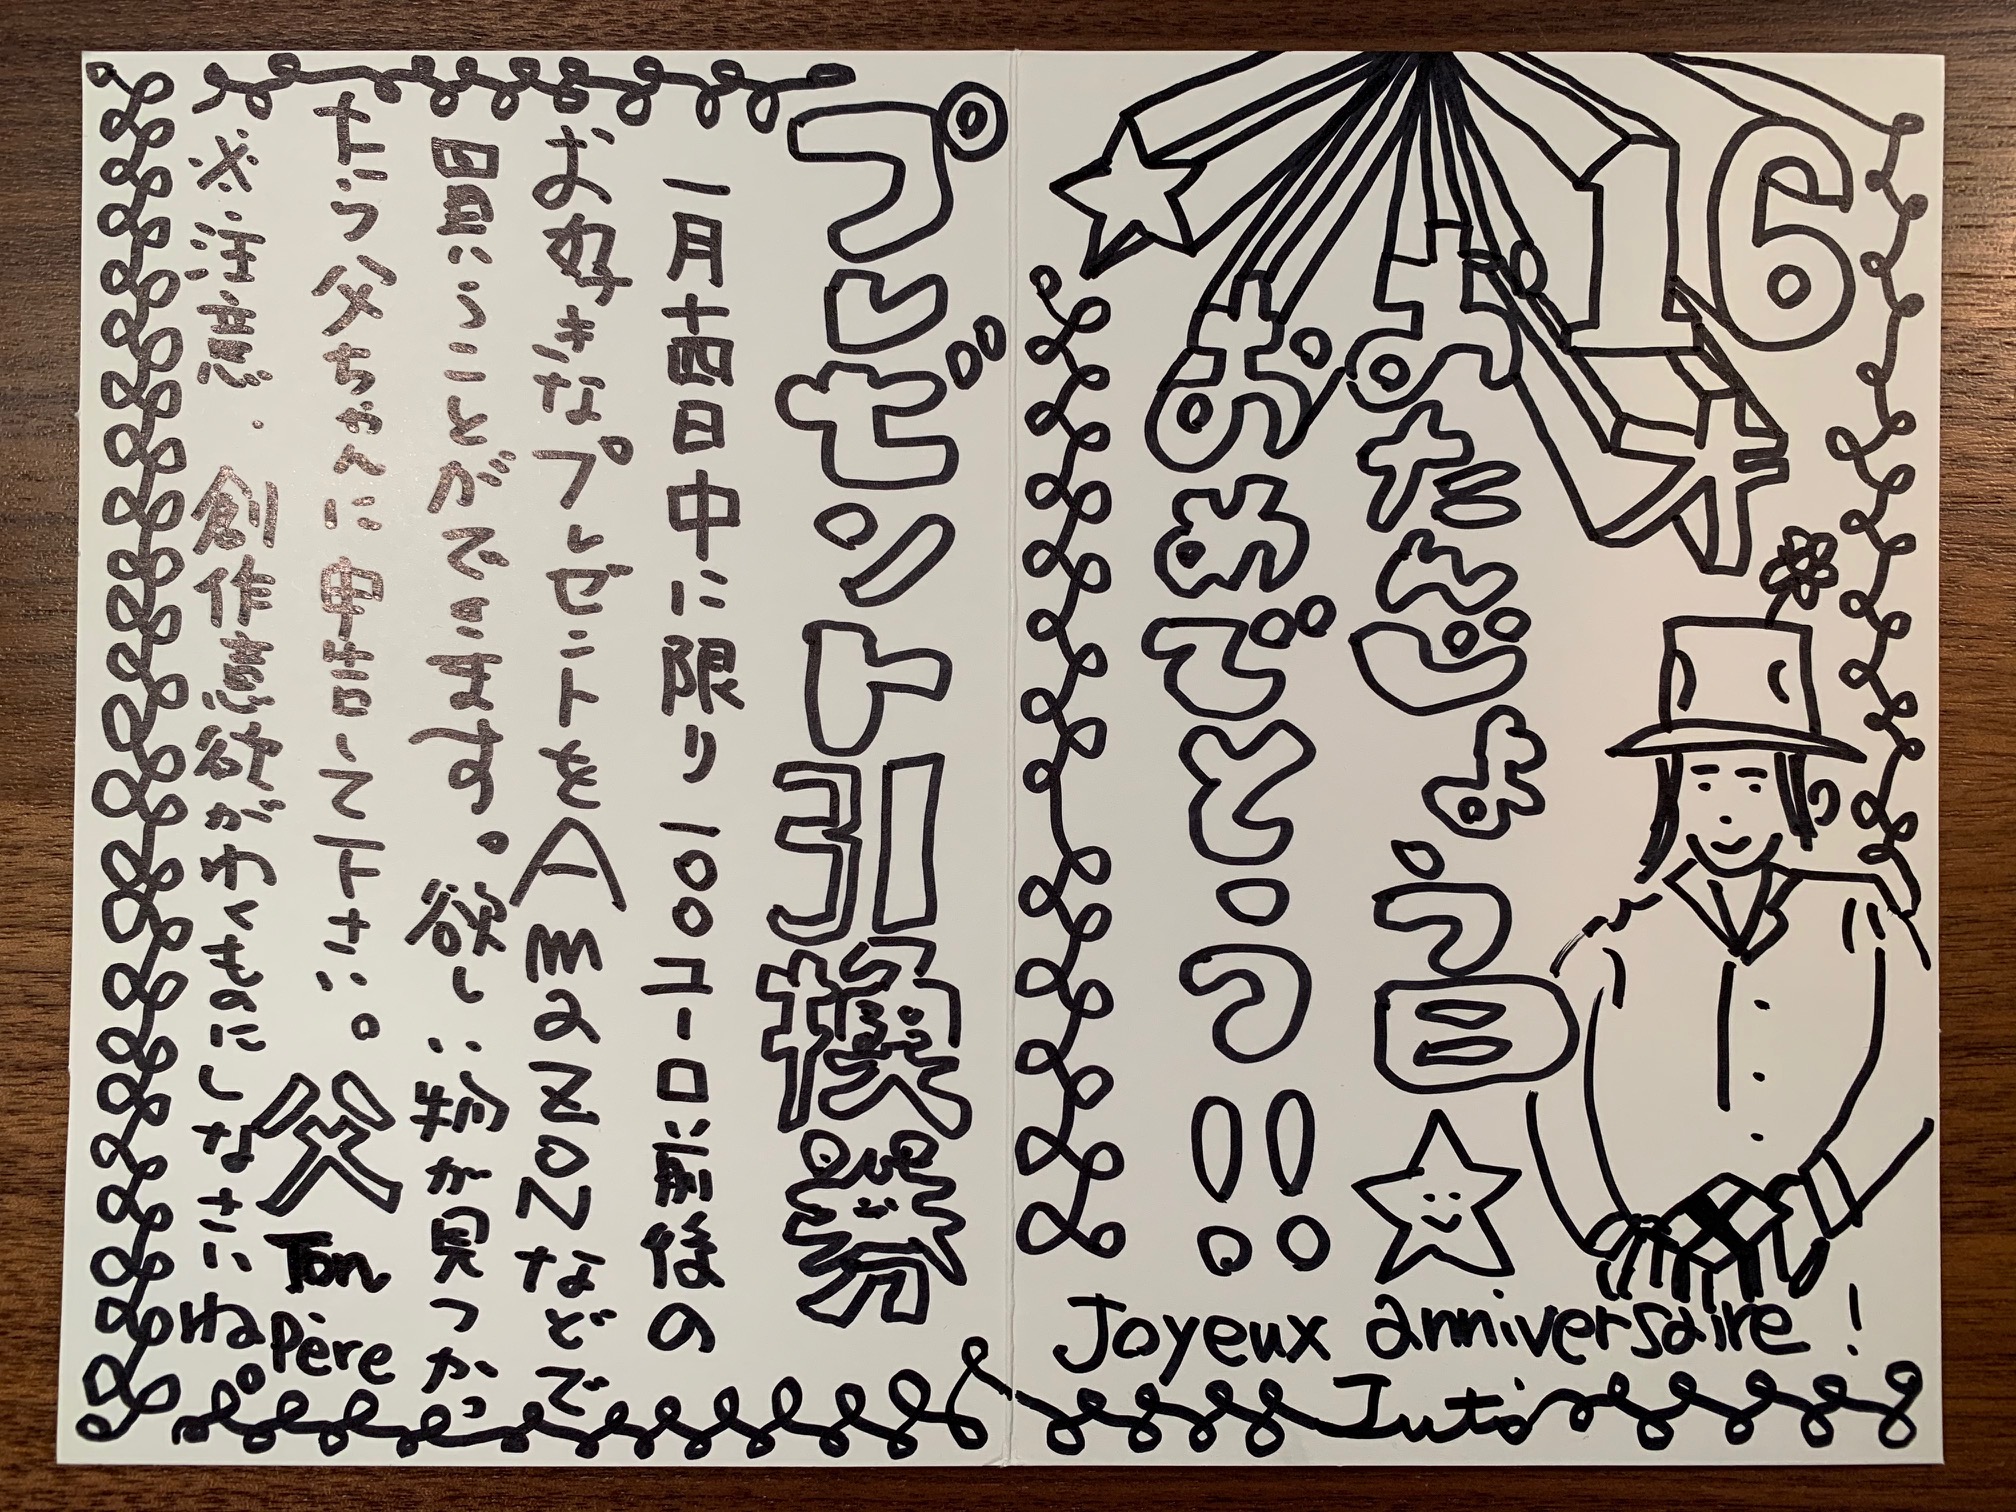 16才
おたんじょう日
おめでとう!!
Joyeux anniversaire !
プレゼント引換券
一月十四日中に限り100ユーロ前後の
お好きなプレゼントをAmaZONなどで
買うことができます。欲しい物が見つかっ
たら父ちゃんに申告して下さい。
※注意.創作意欲がわくものにしなさいね。
父
Ton
Père